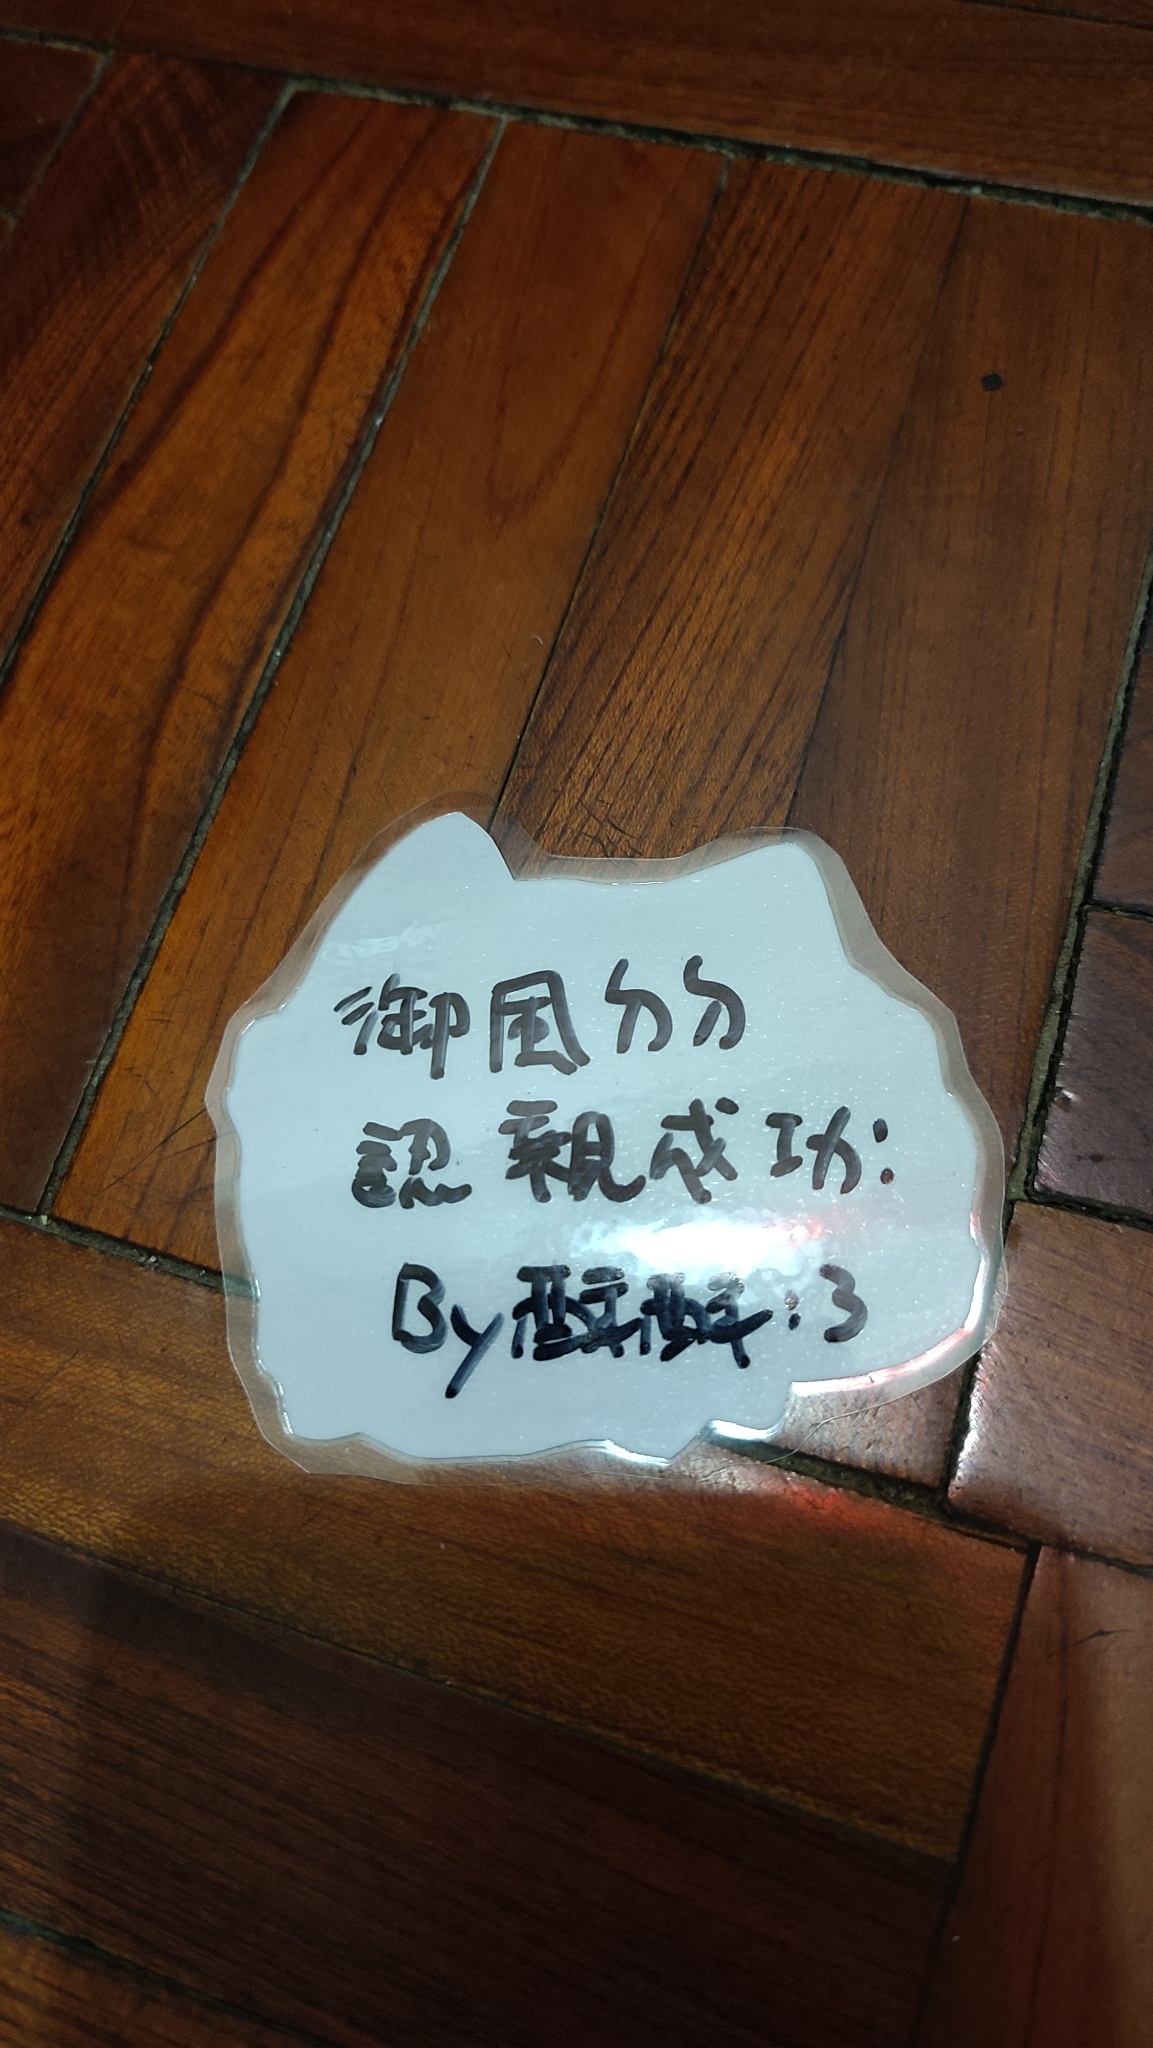 御風ㄉㄉ
認親成功:
By醇醇:3